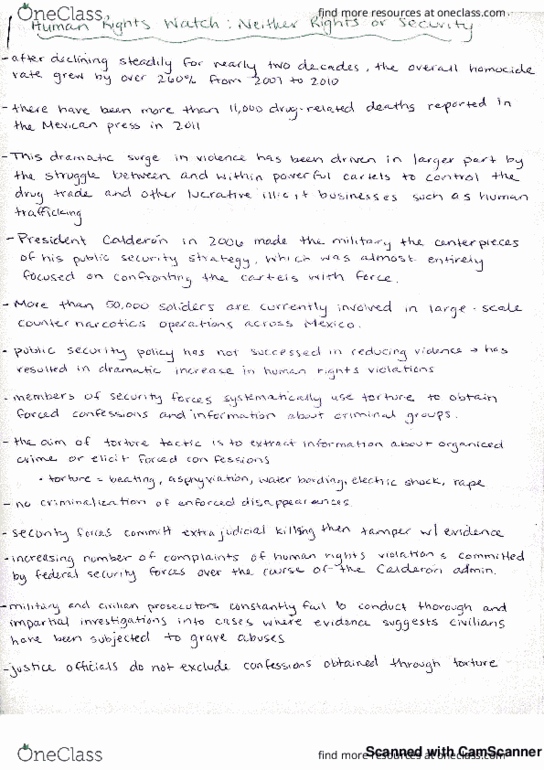 OneClass
find more resources at oneclass.com
Human Rights Watch: Neither Rights or Security
find more resources at oneclass.com
- after declining steadily for nearly two decades, the overall homocide
rate grew by over 260% from 2007 to 2010
- there have been more than 11,000 drug-related deaths reported in
the Mexican press in 2011
- This dramatic surge in violence has been driven in larger part by
the struggle between and within powerful cartels to control the
drug trade and other lucrative illicit businesses such as human
trafficking
- President Calderón in 2006 made the military the centerpieces
of his public security strategy, which was almost entirely
focused on confronting the cartels with force.
- More than 50,000 soliders are currently involved in large-scale
counternarcotics operations across Mexico.
- public security policy has not successed in reducing violence → has
resulted in dramatic increase in human rights violations
- members of security forces systematically use torture to obtain
forced confessions and information about criminal groups.
- the aim of torture tactic is to extract information about organized
crime or elicit forced confessions
• torture = beating, asphyxiation, water bording, electric shock, rape
- no criminalization of enforced disappearances.
- security forces committ extrajudicial killing then tamper w/ evidence
- increasing number of complaints of human rights violations committed
by federal security forces over the curse of the Calderón admin.
- military and civilian prosecutors constantly fail to conduct thorough and
impartial investigations into cases where evidence suggests civilians
have been subjected to grave abuses
- justice officials do not exclude confessions obtained through torture
OneClass
find more resources at oneclass.com
Scanned with CamScanner